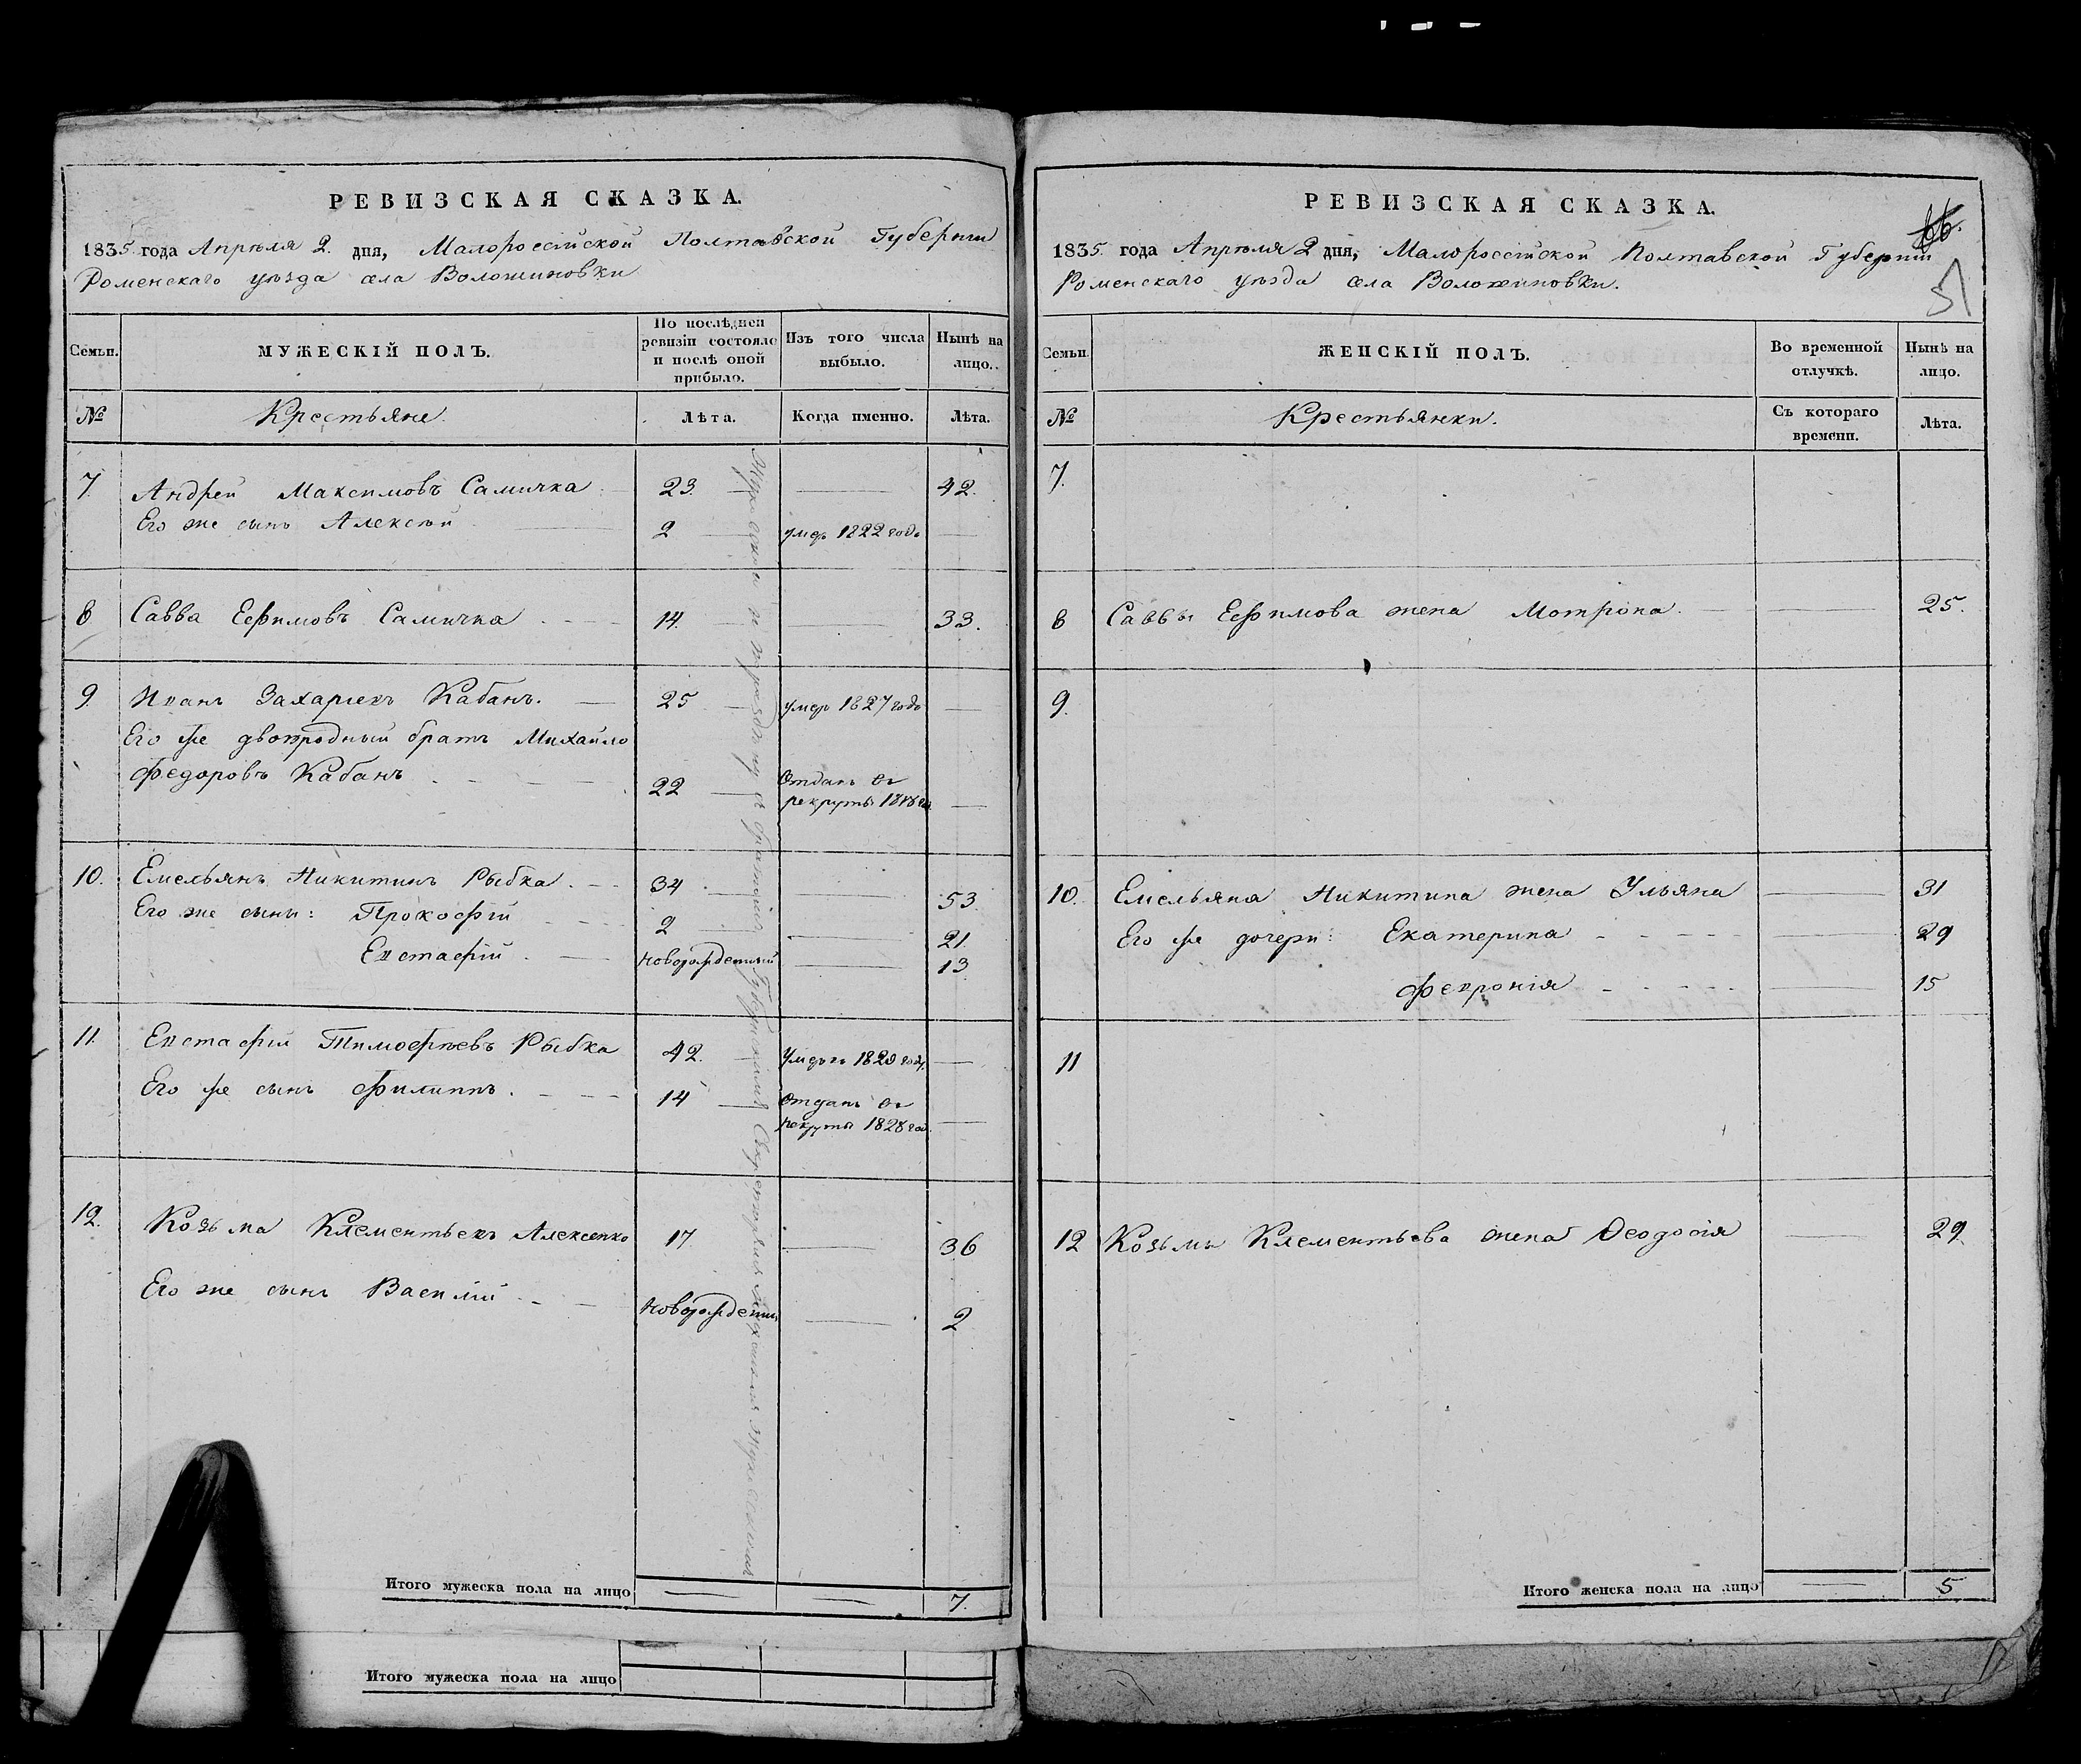 РЕВИЗСКАЯ СКАЗКА.
1835 года Апрѣля 2. дня, Малороссійской Полтавской Губерніи
Роменскаго уѣзда села Волошиновки
Семьи. МУЖЕСКІЙ ПОЛЪ. По послѣдней ревизіи состояло и послѣ оной прибыло. Изъ того числа выбыло. Нынѣ на лицо.
№ Крестьяне. Лѣта. Когда именно. Лѣта.
7. Андрей Максимовъ Самичка 23. 42.
Его же сынъ Алексѣй 2 умеръ 1822 года
8 Савва Ефимовъ Самичка 14. 33.
9. Иванъ Захаріевъ Кабанъ. 25 умеръ 1827 года
Его же двоюродный братъ Михайло
Федоровъ Кабанъ 22 Отданъ въ рекруты
10. Емельянъ Никитинъ Рыбка. 34 53.
Его же сыны: Прокофій 2 21.
Евстафій новорожденный 13.
11. Евстафій Тимофѣевъ Рыбка 42. умеръ 1820 года
Его же сынъ Филиппъ. 14 Отданъ въ рекруты 1828 год.
12. Козьма Клементьевъ Алексенко 17 36
Его же сынъ Василій новорожденный 2
Итого мужеска пола на лицо 7.
Итого мужеска пола на лицо
РЕВИЗСКАЯ СКАЗКА.
66.
51
1835. года Апрѣля 2 дня, Малороссійской Полтавской Губерніи
Роменскаго уѣзда села Волошиновки.
Семьи. ЖЕНСКІЙ ПОЛЪ. Во временной отлучкѣ. Нынѣ на лицо.
№ Крестьянки. Съ котораго времени. Лѣта.
7.
8 Саввы Ефимова жена Мотрона. 25.
9.
10. Емельяна Никитина жена Ульяна 31
Его же дочери: Екатерина 29
Февронія 15
11
12 Козьмы Клементьева жена Ѳеодосія 29.
Итого женска пола на лицо 5